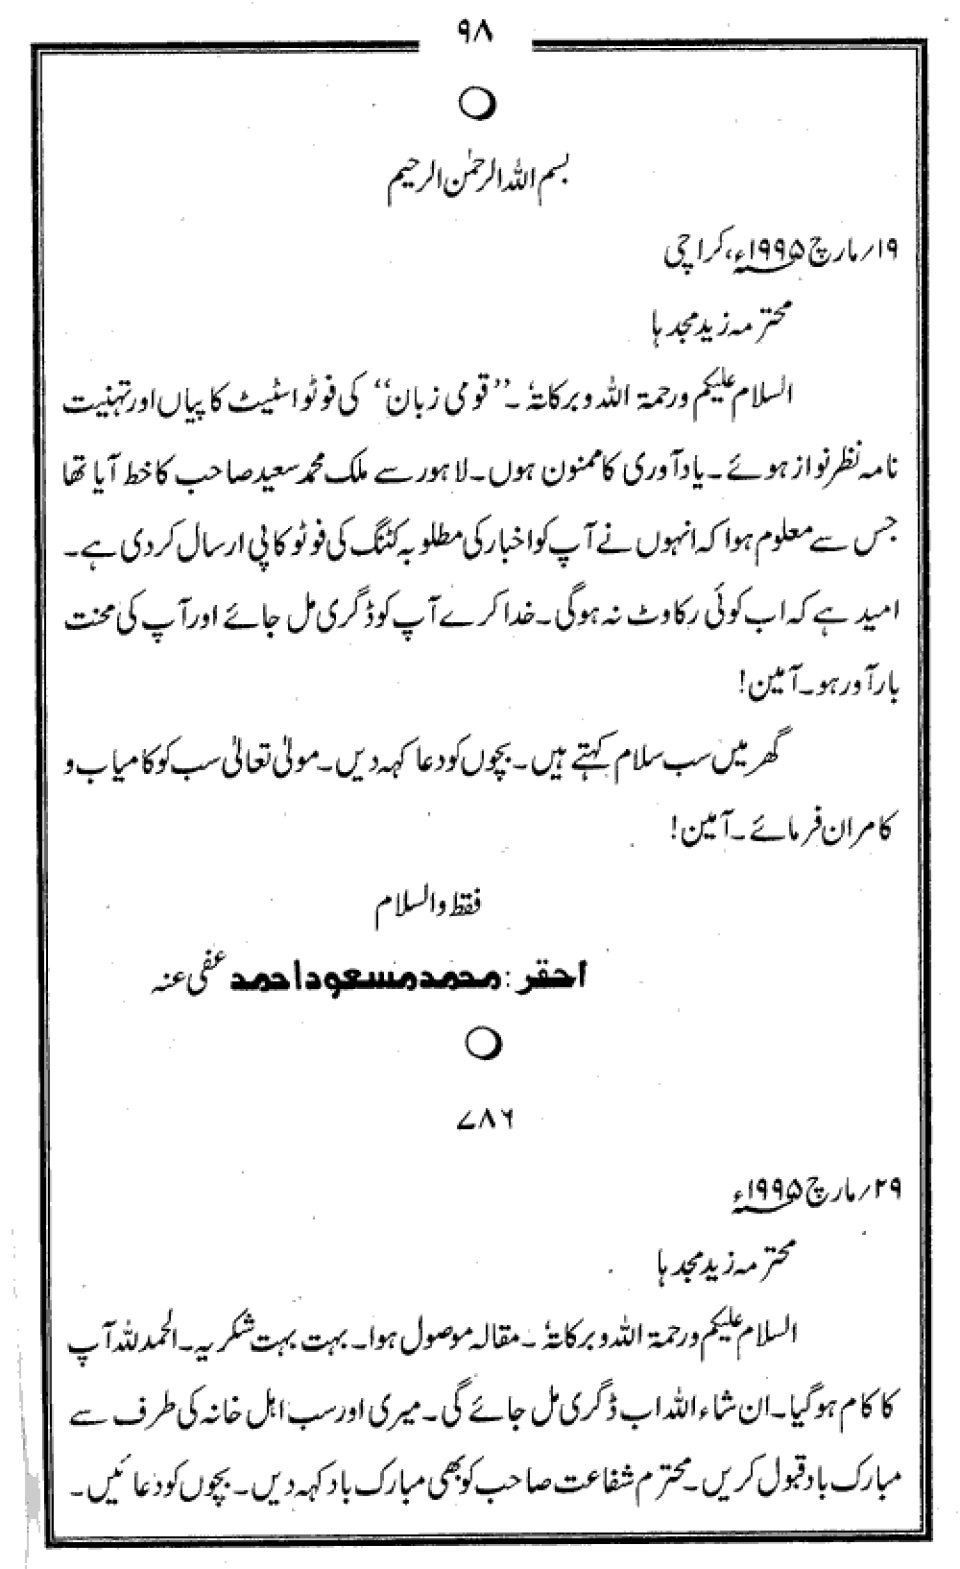 ۹۸
بسم اللہ الرحمٰن الرحیم
۱۹؍ مارچ ۱۹۹۵ء، کراچی
محترمہ زید مجدہا
السلام علیکم ورحمۃ اللہ وبرکاتہٗ ۔ ’’قومی زبان‘‘ کی فوٹو اسٹیٹ کاپیاں اور تہنیت
نامہ نظر نواز ہوئے۔ یاد آوری کا ممنون ہوں۔ لاہور سے ملک محمد سعید صاحب کا خط آیا تھا
جس سے معلوم ہوا کہ انہوں نے آپ کو اخبار کی مطلوبہ کٹنگ کی فوٹو کاپی ارسال کردی ہے۔
امید ہے کہ اب کوئی رکاوٹ نہ ہوگی۔ خدا کرے آپ کو ڈگری مل جائے اور آپ کی محنت
بار آور ہو۔ آمین!
گھر میں سب سلام کہتے ہیں۔ بچوں کو دعا کہہ دیں۔ مولیٰ تعالیٰ سب کو کامیاب و
کامران فرمائے۔ آمین!
فقط والسلام
احقر: محمد مسعود احمد عفی عنہ
۷۸۶
۲۹؍ مارچ ۱۹۹۵ء
محترمہ زید مجدہا
السلام علیکم ورحمۃ اللہ وبرکاتہٗ ۔ مقالہ موصول ہوا۔ بہت بہت شکریہ۔ الحمدللہ آپ
کا کام ہوگیا۔ ان شاء اللہ اب ڈگری مل جائے گی۔ میری اور سب اہل خانہ کی طرف سے
مبارک باد قبول کریں۔ محترم شفاعت صاحب کو بھی مبارک باد کہہ دیں۔ بچوں کو دعائیں۔